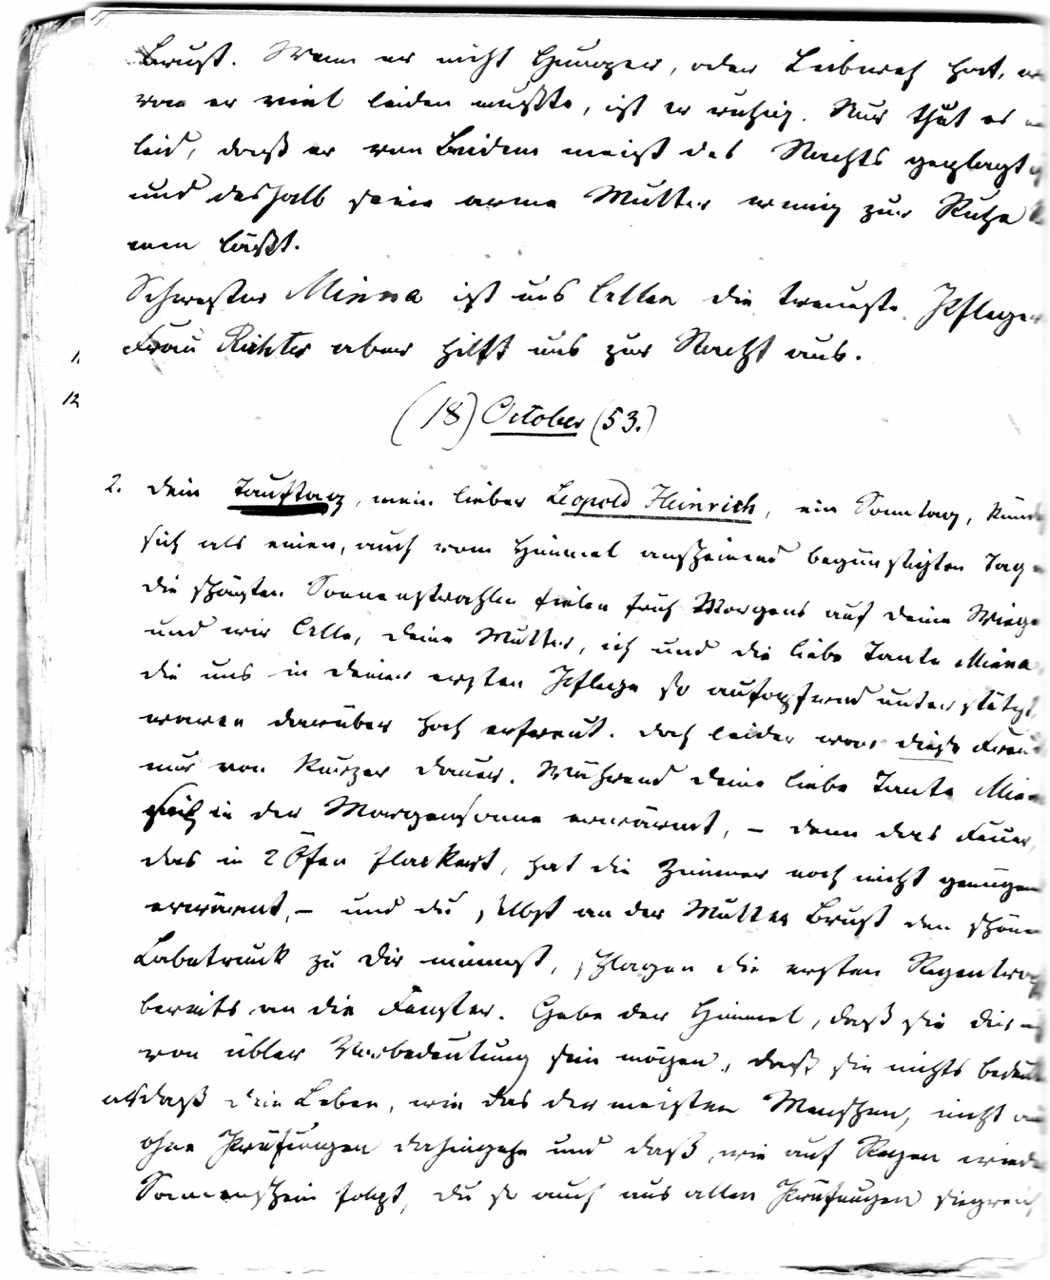 Brust. Wenn er nicht Hunger, oder Leibweh hat,
von er viel leiden mußte, ist er ruhig. Nur thut es
leid, daß er von Beidem meist des Nachts geplagt
und deshalb seine arme Mutter wenig zur Ruhe
men läßt.
Schwester Minna ist uns Allen die treueste Pfleger
Frau Richter aber hilft uns zur Nacht aus.
11
12
(18) October (53.)
2. Dein Tauftag, mein lieber Leopold Heinrich, ein Sonntag, künd
sich als einen, auch vom Himmel anscheinend begünstigten Tag
die schönsten Sonnenstrahlen fielen früh Morgens auf deine Wiege
und wir Alle, deine Mutter, ich und die liebe Tante Minna,
die uns in deiner ersten Pflege so aufopfernd unterstützt,
waren darüber hoch erfreut. Doch leider war diese Freud
nur von kurzer Dauer. Während deine liebe Tante Min
sich in der Morgensonne erwärmt, – denn das Feuer,
das in 2 Öfen flackert, hat die Zimmer noch nicht genügen
erwärmt, – und du, selbst an der Mutter Brust den schönen
Labetrunk zu dir nimmst, schlagen die ersten Regentrop
bereits an die Fenster. Gebe der Himmel, daß sie dir
von übler Vorbedeutung sein mögen, daß sie nichts bedeut
als daß dein Leben, wie das der meisten Menschen, nicht
ohne Prüfungen dahingehe und daß, wie auf Regen wied
Sonnenschein folgt, du so auch aus allen Prüfungen siegreich